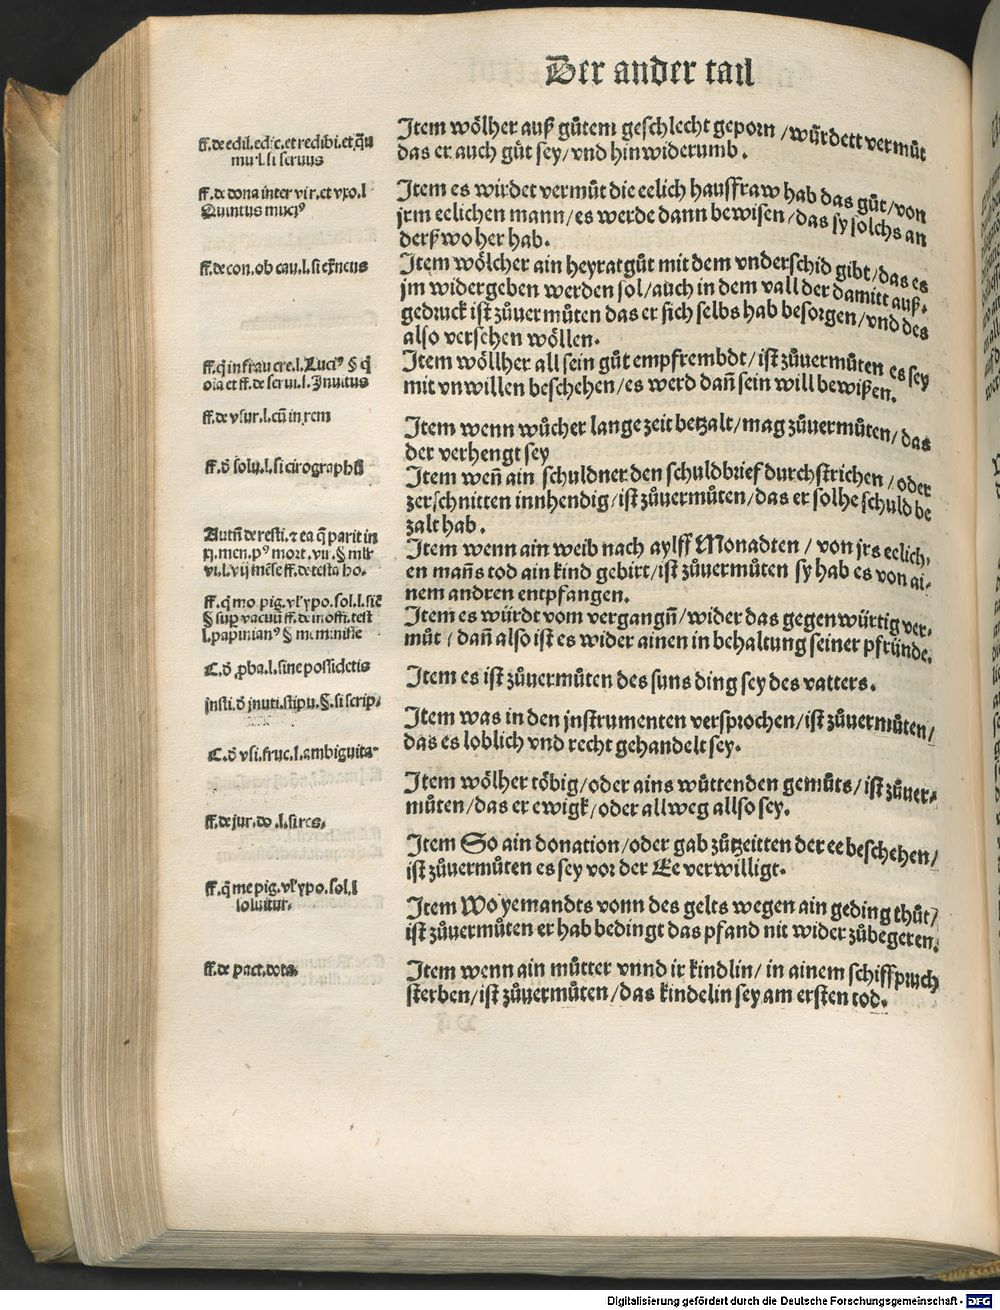 Der ander tail
ff. de edil. edic. et redibi. et q̄u
mul. si seruus
Item wölher auß gůtem geschlecht geporn / wůrdett vermůt
das er auch gůt sey / vnd hinwiderumb .
ff. de dona inter vir. et vxo. l
Quintus muciꝰ
Item es wirdet vermůt die eelich haussfraw hab das gůt / von
jrm eelichen mann / es werde dann bewisen / das sy solchs an
derß wo her hab.
ff. de con. ob cau. l. si extraneus
Item wölcher ain heyratgůt mit dem vnderschid gibt / das es
jm widergeben werden sol / auch in dem vall der damitt auß⸗
gedruck ist zůuermůten das er sich selbs hab besorgen / vnd des
also versehen wöllen.
ff. q̄ in frau cre. l. Luciꝰ § q̄
oīa et ff. de serui. l. Inuitus
Item wöllher all sein gůt empfrembdt / ist zůuermůten es sey
mit vnwillen beschehen / es werd dañ sein will bewißen.
ff. de vsur. l. cū in rem
Item wenn wůcher lange zeit betzalt / mag zůuermůten / das
der verhengt sey
ff. ð solu. l. si cirographū
Item weñ ain schuldner den schuldbrief durchstrichen / oder
zerschnitten innhendig / ist zůuermůten / das er solhe schuld be
zalt hab .
Autñ de resti. ⁊ ea q̄ parit in
xj. men. pꝰ mort. vii. § mlr
vi. l. vij mēse ff. de testa ho.
Item wenn ain weib nach aylff Monadten / von jrs eelich⸗
en mañs tod ain kind gebirt / ist zůuermůten sy hab es von ai⸗
nem andren entpfangen.
ff. q̄ mo pig. vl ypo. sol. l. sic̄
§ sup vacuū ff. de inoffi. test
l. papinianꝰ § meminisse
Item es wůrdt vom vergangñ / wider das gegenwürtig ver⸗
můt / dañ also ist es wider ainen in behaltung seiner pfründe.
C. ð ꝓba. l. sine possidetis
Item es ist zůuermůten des suns ding sey des vatters .
jnsti. ð jnuti. stipu. §. si scrip⸗
Item was in den jnstrumenten versprochen / ist zůuermůten /
das es loblich vnd recht gehandelt sey.
C. ð vsi. fruc. l. ambiguita⸗
Item wölher töbig / oder ains wůttenden gemůts / ist zůuer⸗
můten / das er ewigk / oder allweg allso sey.
ff. de jur. do . l. si res.
Item So ain donation / oder gab zůtzeitten der ee beschehen /
ist zůuermůten es sey vor der Ee verwilligt.
ff. q̄ me pig. vl ypo. sol. l
soluitur.
Item Wo yemandts vonn des gelts wegen ain geding thůt /
ist zůuermůten er hab bedingt das pfand nit wider zůbegeren.
ff. de pact. dota.
Item wenn ain můtter vnnd ir kindlin / in ainem schiffpruch
sterben / ist zůuermůten / das kindelin sey am ersten tod.
Digitalisierung gefördert durch die Deutsche Forschungsgemeinschaft - DFG